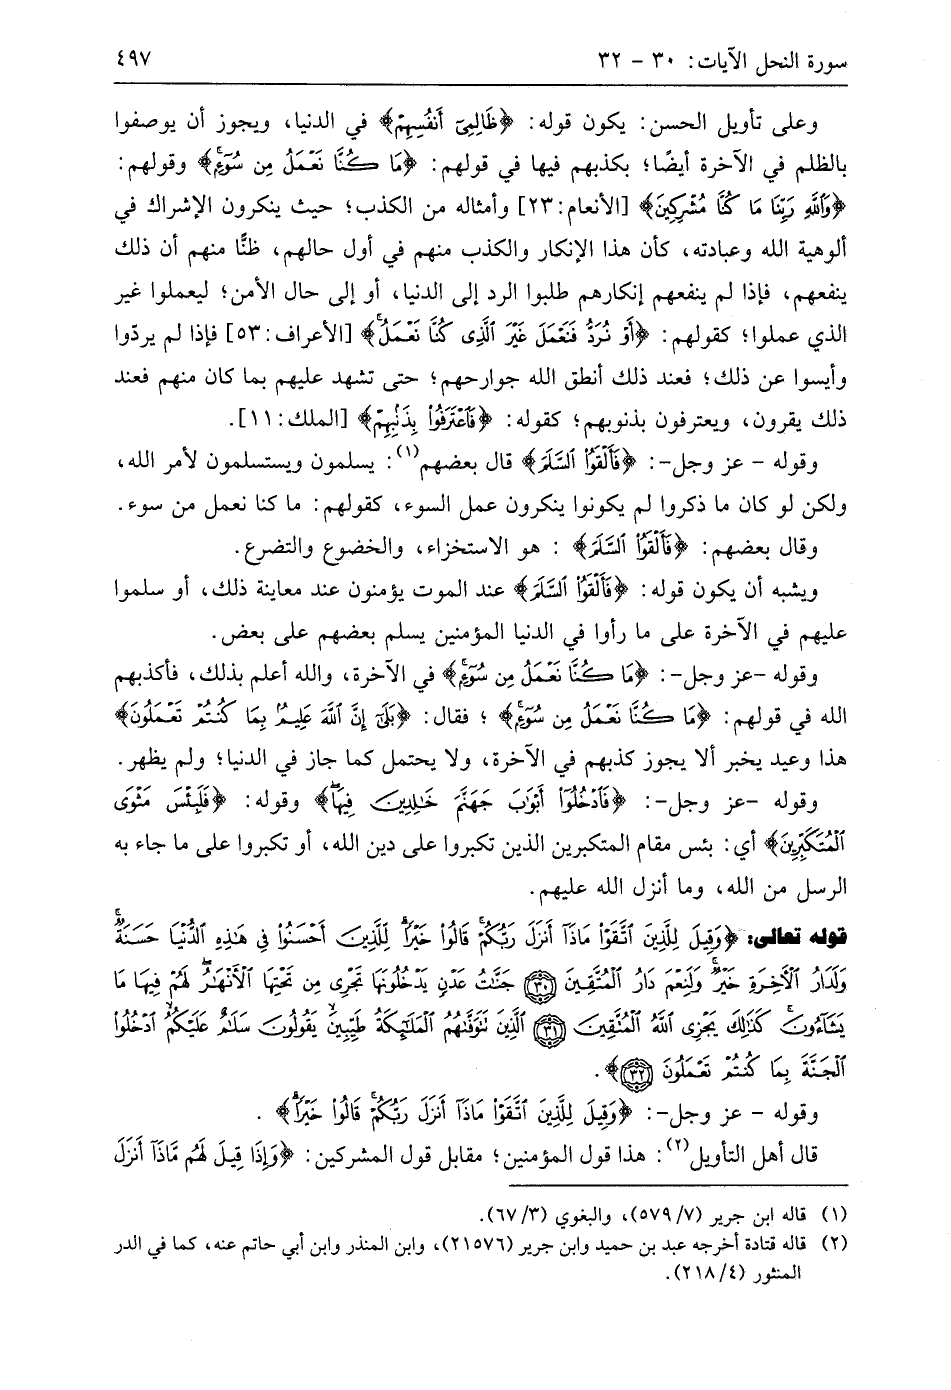 سورة النحل الآيات: ٣٠ - ٣٢ ٤٩٧
وعلى تأويل الحسن: يكون قوله: ﴿ظَالِمِىٓ أَنفُسِهِمْ﴾ في الدنيا، ويجوز أن يوصفوا
بالظلم في الآخرة أيضًا؛ بكذبهم فيها في قولهم: ﴿مَا كُنَّا نَعْمَلُ مِن سُوٓءٍ﴾ وقولهم:
﴿وَٱللَّهِ رَبِّنَا مَا كُنَّا مُشْرِكِينَ﴾ [الأنعام: ٢٣] وأمثاله من الكذب؛ حيث ينكرون الإشراك في
ألوهية الله وعبادته، كأن هذا الإنكار والكذب منهم في أول حالهم، ظنًّا منهم أن ذلك
ينفعهم، فإذا لم ينفعهم إنكارهم طلبوا الرد إلى الدنيا، أو إلى حال الأمن؛ ليعملوا غير
الذي عملوا؛ كقولهم: ﴿أَوْ نُرَدُّ فَنَعْمَلَ غَيْرَ ٱلَّذِى كُنَّا نَعْمَلُ﴾ [الأعراف: ٥٣] فإذا لم يردّوا
وأيسوا عن ذلك؛ فعند ذلك أنطق الله جوارحهم؛ حتى تشهد عليهم بما كان منهم فعند
ذلك يقرون، ويعترفون بذنوبهم؛ كقوله: ﴿فَٱعْتَرَفُوا۟ بِذَنۢبِهِمْ﴾ [الملك: ١١].
وقوله - عز وجل-: ﴿فَأَلْقَوُا۟ ٱلسَّلَمَ﴾ قال بعضهم(١): يسلمون ويستسلمون لأمر الله،
ولكن لو كان ما ذكروا لم يكونوا ينكرون عمل السوء، كقولهم: ما كنا نعمل من سوء.
وقال بعضهم: ﴿فَأَلْقَوُا۟ ٱلسَّلَمَ﴾ : هو الاستخزاء، والخضوع والتضرع.
ويشبه أن يكون قوله: ﴿فَأَلْقَوُا۟ ٱلسَّلَمَ﴾ عند الموت يؤمنون عند معاينة ذلك، أو سلموا
عليهم في الآخرة على ما رأوا في الدنيا المؤمنين يسلم بعضهم على بعض.
وقوله -عز وجل-: ﴿مَا كُنَّا نَعْمَلُ مِن سُوٓءٍۭ﴾ في الآخرة، والله أعلم بذلك، فأكذبهم
الله في قولهم: ﴿مَا كُنَّا نَعْمَلُ مِن سُوٓءٍۭ﴾ ؛ فقال: ﴿بَلَىٰٓ إِنَّ ٱللَّهَ عَلِيمٌۢ بِمَا كُنتُمْ تَعْمَلُونَ﴾
هذا وعيد يخبر ألا يجوز كذبهم في الآخرة، ولا يحتمل كما جاز في الدنيا؛ ولم يظهر.
وقوله -عز وجل-: ﴿فَٱدْخُلُوٓا۟ أَبْوَٰبَ جَهَنَّمَ خَٰلِدِينَ فِيهَا﴾ وقوله: ﴿فَلَبِئْسَ مَثْوَى
ٱلْمُتَكَبِّرِينَ﴾ أي: بئس مقام المتكبرين الذين تكبروا على دين الله، أو تكبروا على ما جاء به
الرسل من الله، وما أنزل الله عليهم.
قوله تعالى: ﴿وَقِيلَ لِلَّذِينَ ٱتَّقَوْا۟ مَاذَآ أَنزَلَ رَبُّكُمْ قَالُوا۟ خَيْرًا لِّلَّذِينَ أَحْسَنُوا۟ فِى هَٰذِهِ ٱلدُّنْيَا حَسَنَةٌ
وَلَدَارُ ٱلْءَاخِرَةِ خَيْرٌ وَلَنِعْمَ دَارُ ٱلْمُتَّقِينَ ﴿٣٠﴾ جَنَّٰتُ عَدْنٍ يَدْخُلُونَهَا تَجْرِى مِن تَحْتِهَا ٱلْأَنْهَٰرُ لَهُمْ فِيهَا مَا
يَشَآءُونَ كَذَٰلِكَ يَجْزِى ٱللَّهُ ٱلْمُتَّقِينَ ﴿٣١﴾ ٱلَّذِينَ تَتَوَفَّىٰهُمُ ٱلْمَلَٰٓئِكَةُ طَيِّبِينَ يَقُولُونَ سَلَٰمٌ عَلَيْكُمُ ٱدْخُلُوا۟
ٱلْجَنَّةَ بِمَا كُنتُمْ تَعْمَلُونَ ﴿٣٢﴾﴾ .
وقوله - عز وجل-: ﴿وَقِيلَ لِلَّذِينَ ٱتَّقَوْا۟ مَاذَآ أَنزَلَ رَبُّكُمْ قَالُوا۟ خَيْرًا﴾ .
قال أهل التأويل(٢): هذا قول المؤمنين؛ مقابل قول المشركين: ﴿وَإِذَا قِيلَ لَهُم مَّاذَآ أَنزَلَ
(١) قاله ابن جرير (٥٧٩/٧)، والبغوي (٦٧/٣).
(٢) قاله قتادة أخرجه عبد بن حميد وابن جرير (٢١٥٧٦)، وابن المنذر وابن أبي حاتم عنه، كما في الدر
المنثور (٢١٨/٤).